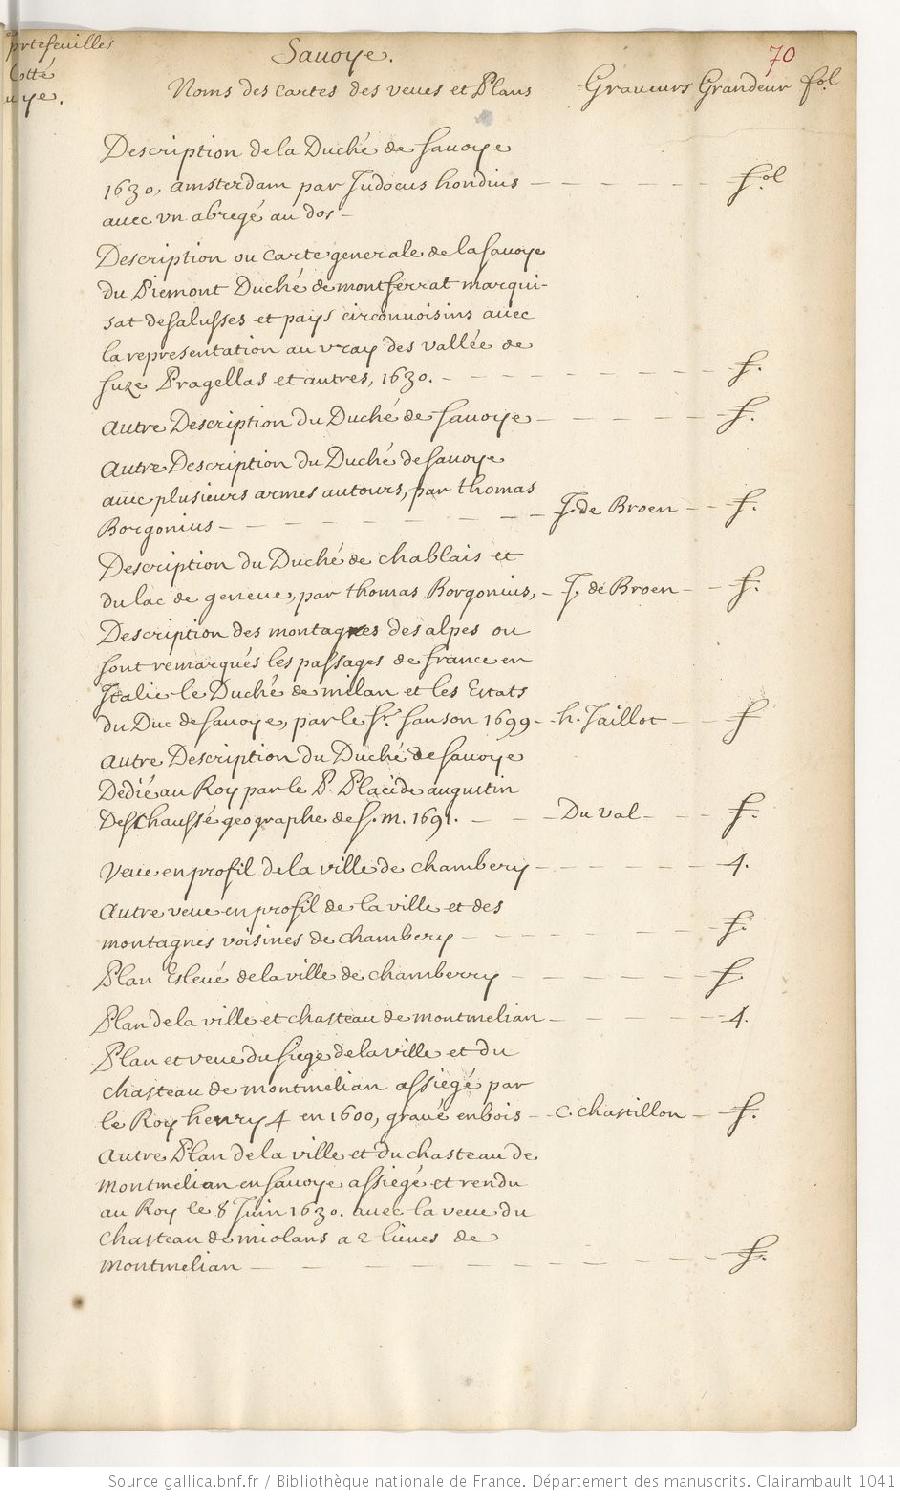 portefeuilles
Cotté
Savoye.
70
Noms des cartes des veues et Plans Graveurs Grandeur fol
Description de la Duché de Savoye
1630, amsterdam par Judocus hondius — — — — — fol
avec vn abregé au dos —
Description ou Carte generale de la Savoye
du Piemont Duché de montferrat marqui-
sat de salusses et pays circonuoisins avec
la representation au vray des vallée de
Suze Pragellas et autres, 1630. — — — — — — f.
Autre Description du Duché de Savoye — — — — — f.
Autre Description du Duché de Savoye
avec plusieurs armes autours, par thomas
Borgonius — — — — — — J. de Broen — — f.
Description du Duché de chablais et
du lac de geneue, par thomas Borgonius, — J. de Broen — — f.
Description des montagnes des alpes ou
sont remarqués les passages de france en
Italie le Duché de milan et les Estats
du Duc de Savoye, par le Sr. Sanson 1699 — h. Jaillot — — f
Autre Description du Duché de Savoye
Dedié au Roy par le P. Placide augustin
Deschaussé geographe de S. m. 1691. — — — Du Val — — f.
Veue en profil de la ville de chambery — — — — — 4.
Autre veue en profil de la ville et des
montagnes voisines de chambery — — — — — — f.
Plan Esleué de la ville de chamberry — — — — — f
Plan de la ville et chasteau de montmelian — — — — — 4.
Plan et veue du siege de la ville et du
chasteau de montmelian assiegé par
le Roy henry 4 en 1600, gravé en bois — C. chastillon — f.
Autre Plan de la ville et du chasteau de
montmelian en Savoye assiegé et rendu
au Roy le 8 Juin 1630. avec la veue du
Chasteau de miolans a 2 lieues de
montmelian — — — — — — — — f.
Source gallica.bnf.fr / Bibliothèque nationale de France. Département des manuscrits. Clairambault 1041